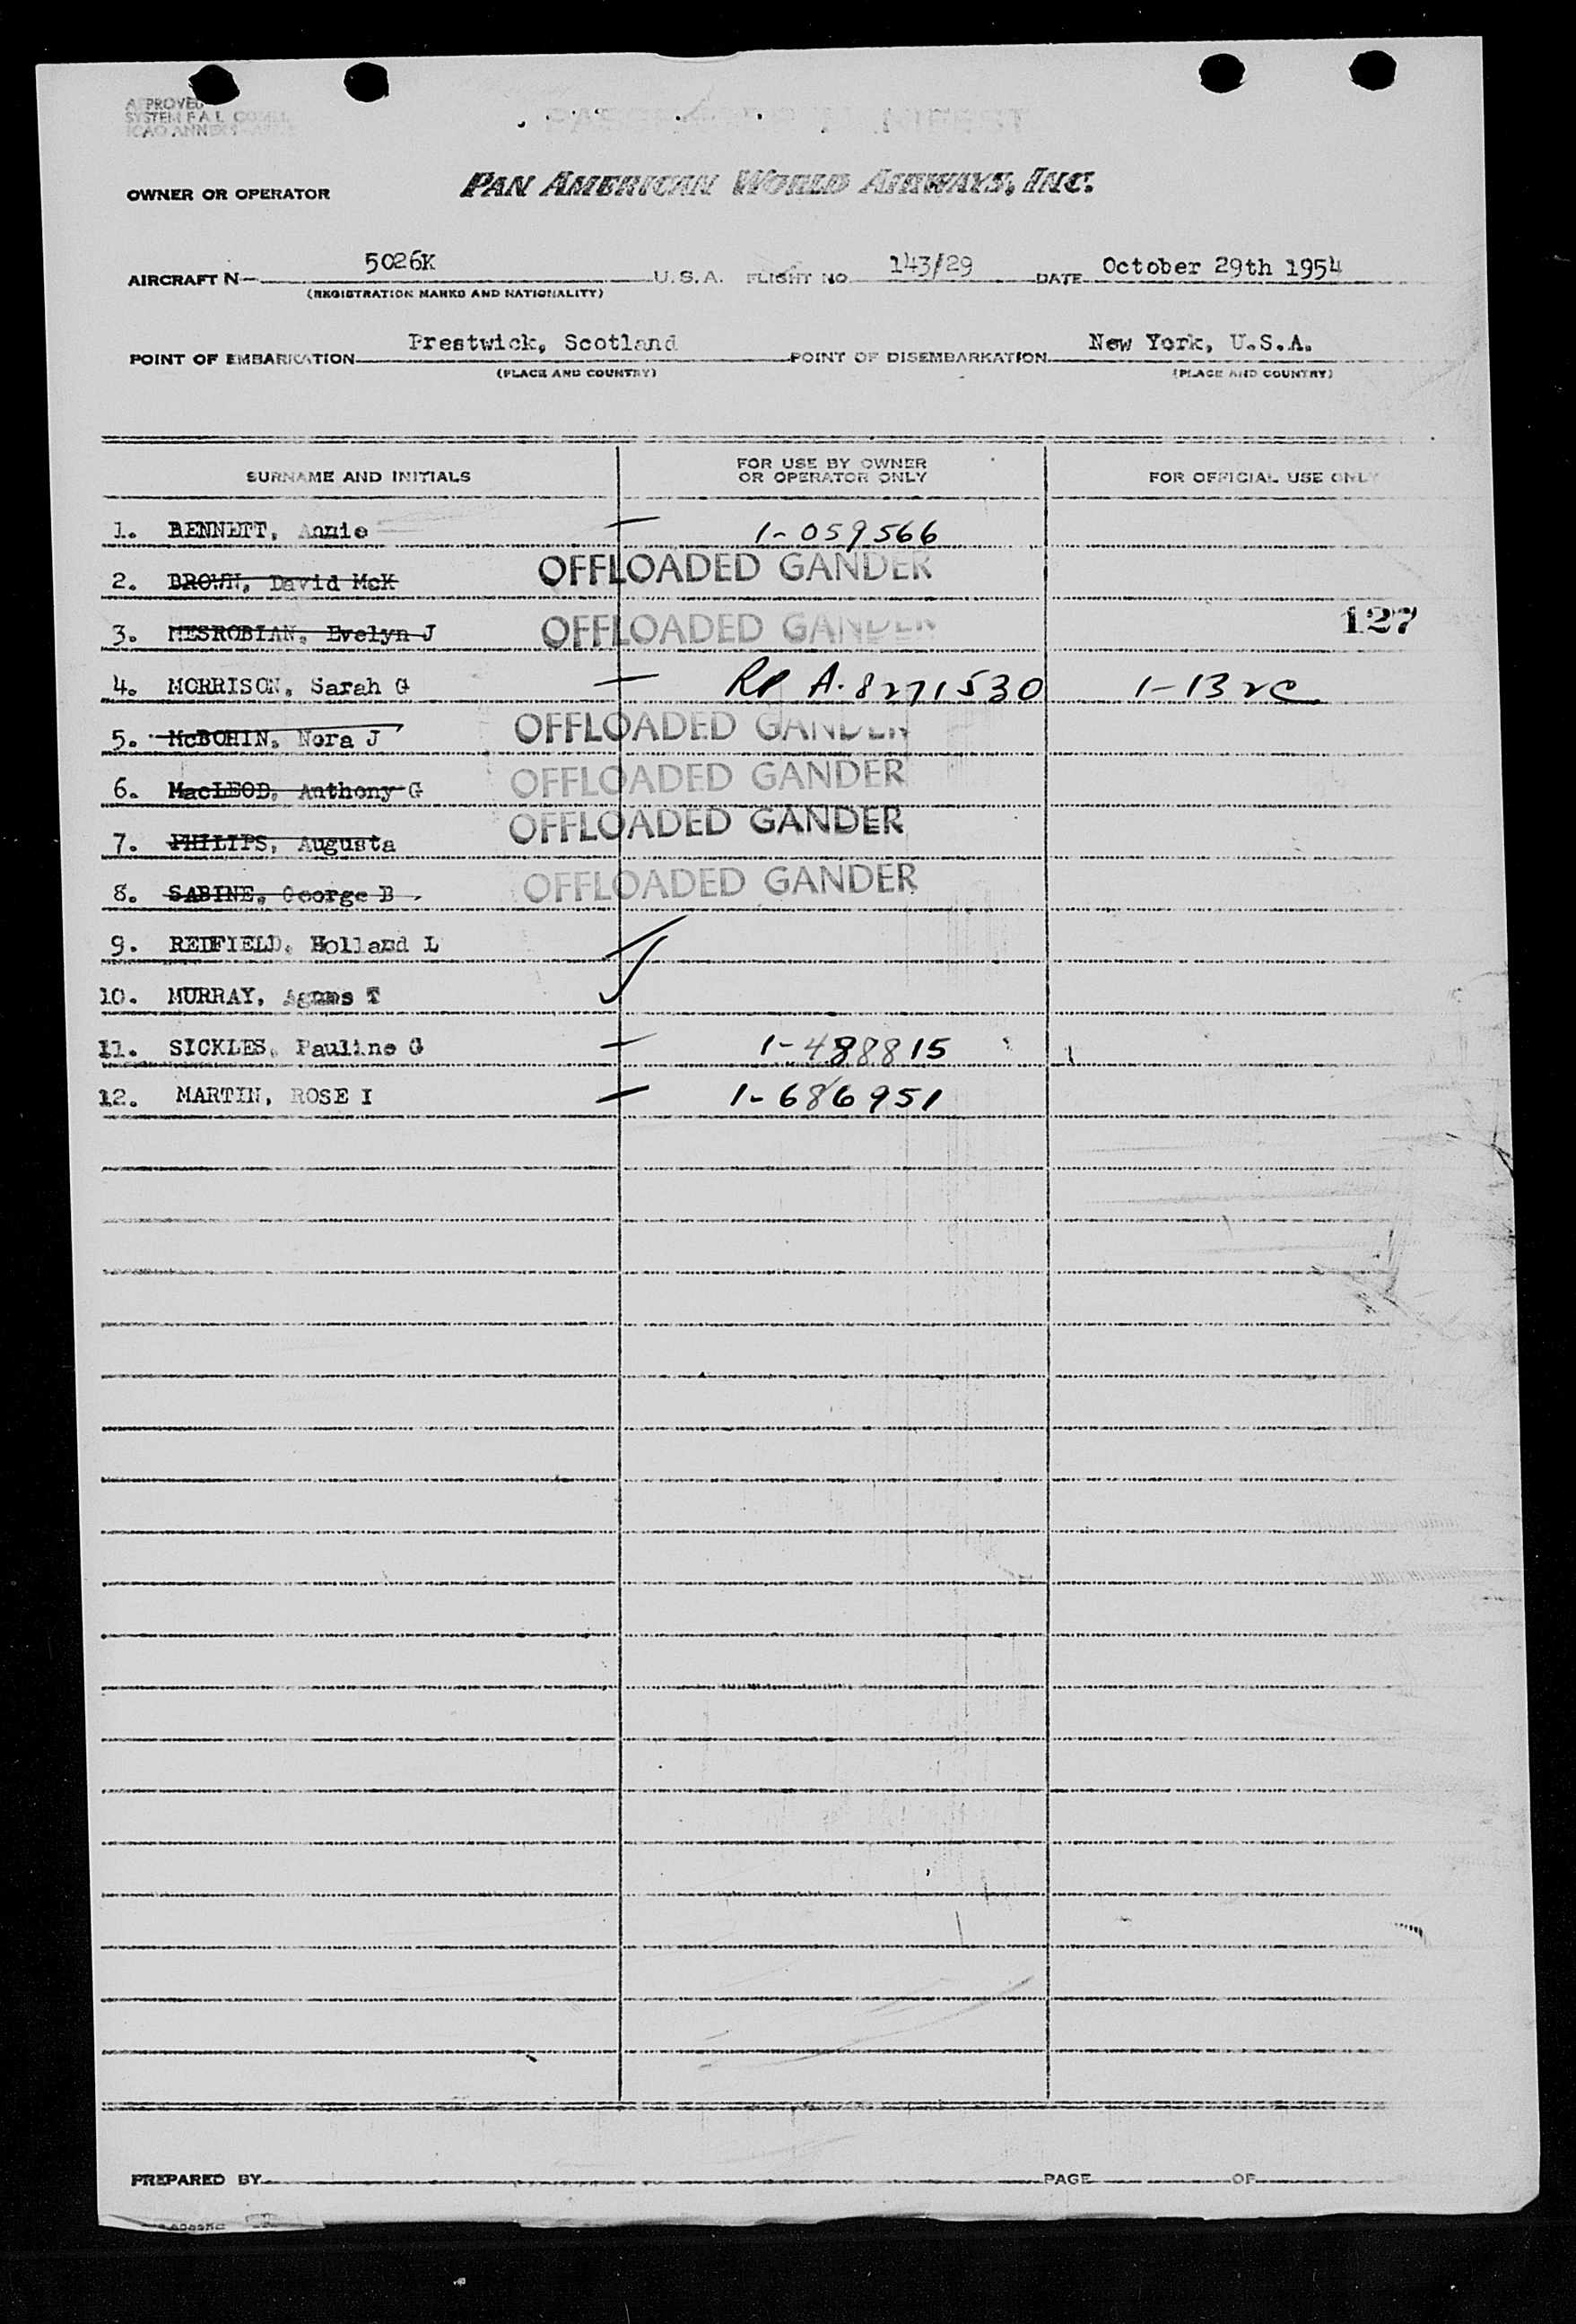 APPROVED
SYSTEM F A L
ICAO ANNEX
OWNER OR OPERATOR PAN AMERICAN WORLD AIRWAYS, INC.
AIRCRAFT N— 5026K U.S.A. FLIGHT NO 143/29 DATE October 29th 1954
(REGISTRATION MARKS AND NATIONALITY)
POINT OF EMBARKATION Prestwick, Scotland POINT OF DISEMBARKATION New York, U.S.A.
(PLACE AND COUNTRY) (PLACE AND COUNTRY)
SURNAME AND INITIALS FOR USE BY OWNER OR OPERATOR ONLY FOR OFFICIAL USE ONLY
1. BENNETT, Annie — 1-059566
2. BROWN, David McK OFFLOADED GANDER
3. MESROBIAN, Evelyn J OFFLOADED GANDER 127
4. MORRISON, Sarah G — RP A-8271530 1-132C
5. McBOHIN, Nora J OFFLOADED GANDER
6. MacLEOD, Anthony G OFFLOADED GANDER
7. PHILIPS, Augusta OFFLOADED GANDER
8. SABINE, George B OFFLOADED GANDER
9. REDFIELD, Holland L
10. MURRAY, Agnes T
11. SICKLES, Pauline G — 1-488815
12. MARTIN, ROSE I — 1-686951
PREPARED BY PAGE OF